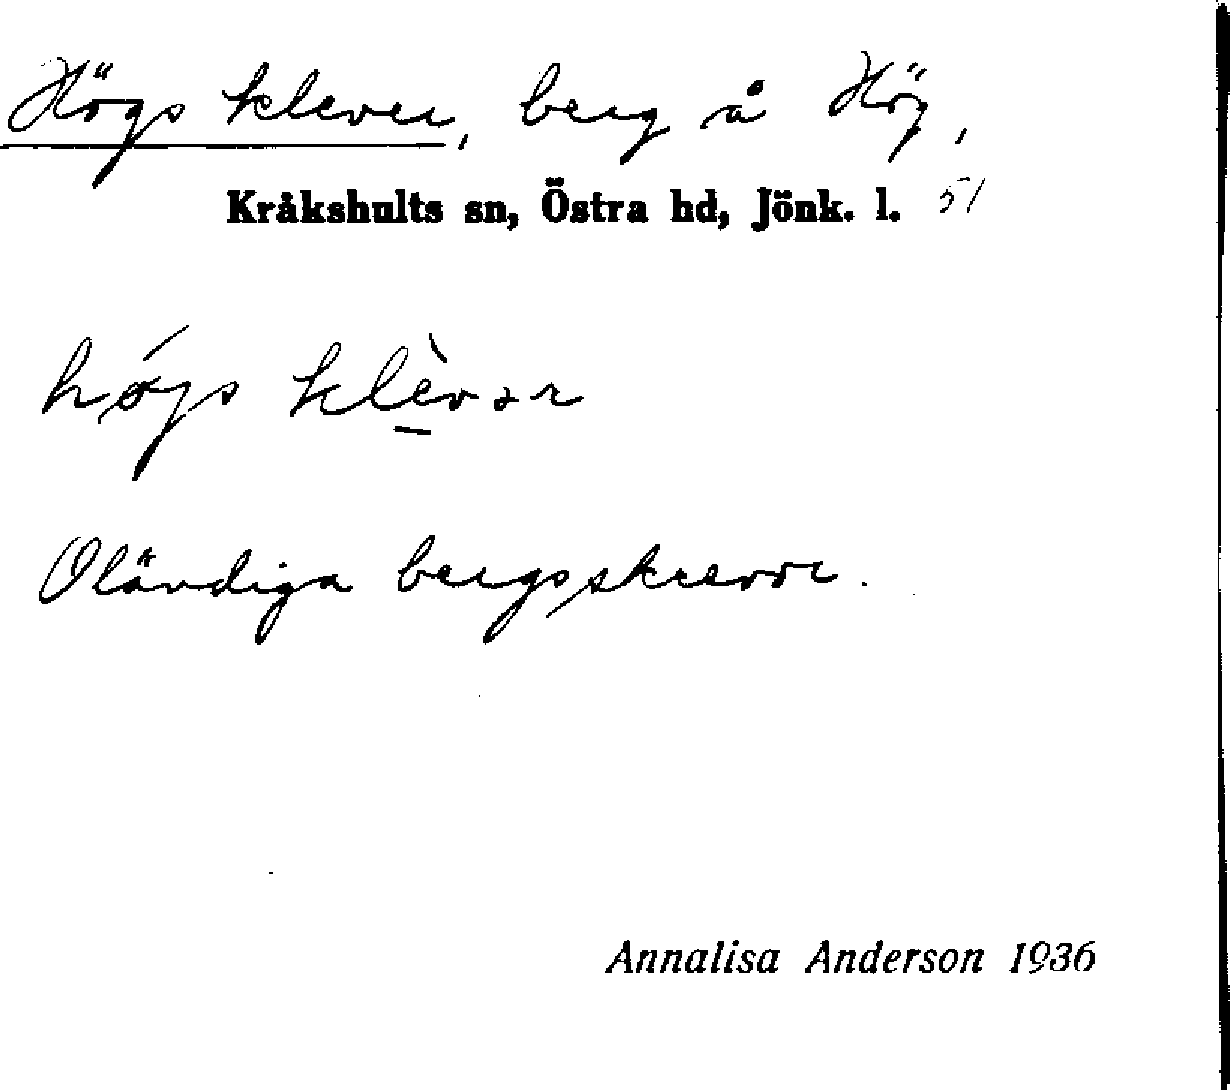 Högs klever, berg å Hög,
Kråkshults sn, Östra hd, Jönk. l. 51
hǿgs klèvər
Oländiga bergsskrevor.
Annalisa Anderson 1936